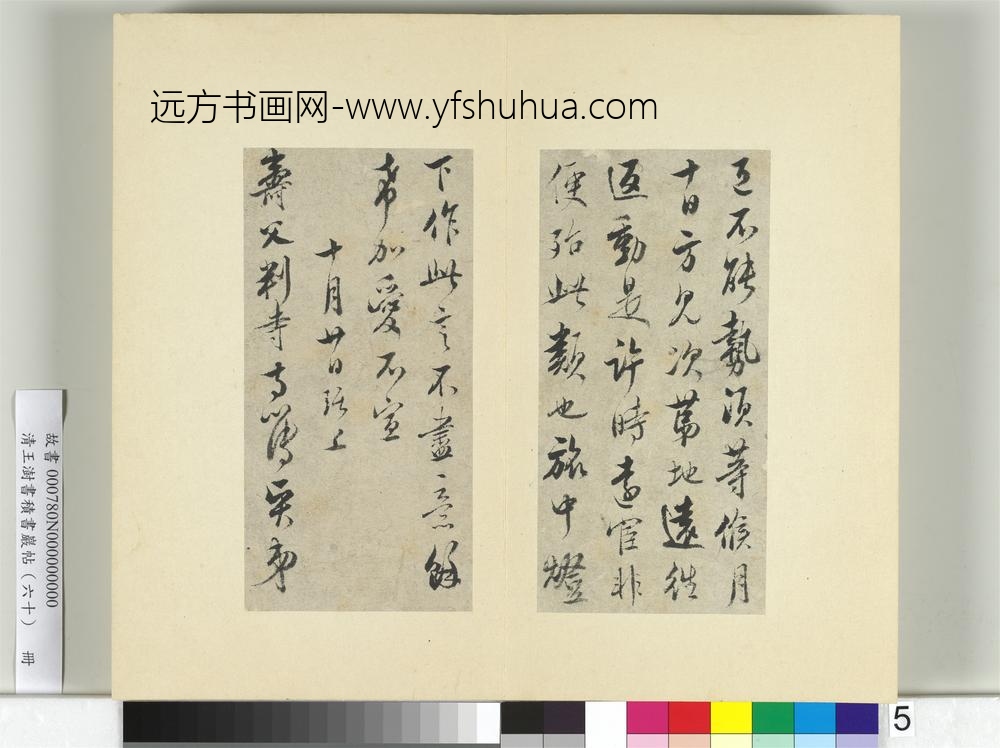 远方书画网-www.yfshuhua.com
正不能執須等候月
十日方見次第地遠往
返動是許時遠宦非
便殆此類也旅中燈
下作此言不盡意餘
希加愛不宣
十月廿日 上
壽父判寺寺簿賢弟
故書000780N000000000
清王澍書積書巖帖(六十) 冊
5